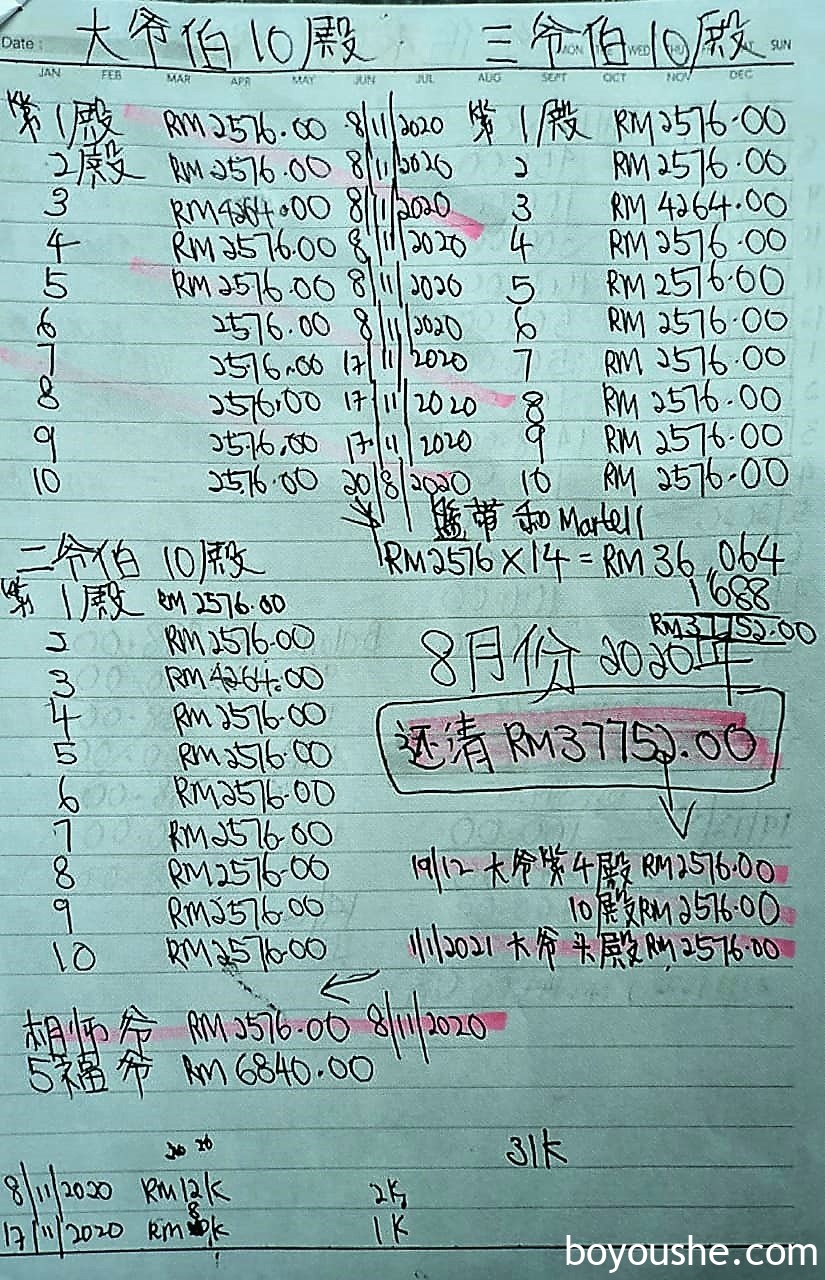 大爷伯10殿 三爷伯10殿
Date: MON WED THU SUN
JAN FEB MAR APR MAY JUN JUL AUG SEPT OCT NOV DEC
第1殿 RM2576.00 8/11/2020 第1殿 RM2576.00
2殿 RM2576.00 8/11/2020 2 RM2576.00
3 RM4264.00 8/11/2020 3 RM4264.00
4 RM2576.00 8/11/2020 4 RM2576.00
5 RM2576.00 8/11/2020 5 RM2576.00
6 2576.00 8/11/2020 6 RM2576.00
7 2576.00 17/11/2020 7 RM2576.00
8 2576.00 17/11/2020 8 RM2576.00
9 2576.00 17/11/2020 9 RM2576.00
10 2576.00 20/8/2020 10 RM2576.00
和Martell
二爷伯10殿 RM2576×14=RM36,064
第1殿 RM2576.00 1688
2 RM2576.00 RM37752.00
3 RM4264.00 8月份2020年
4 RM2576.00
5 RM2576.00 还清RM37752.00
6 RM2576.00
7 RM2576.00
8 RM2576.00 19/12 大爷第4殿RM2576.00
9 RM2576.00 10殿RM2576.00
10 RM2576.00 1/1/2021大爷头殿RM2576.00
RM2576.00 8/11/2020
5福爷 RM6840.00
31K
8/11/2020 RM12K 2K
17/11/2020 RM 1K
boyoushe.com